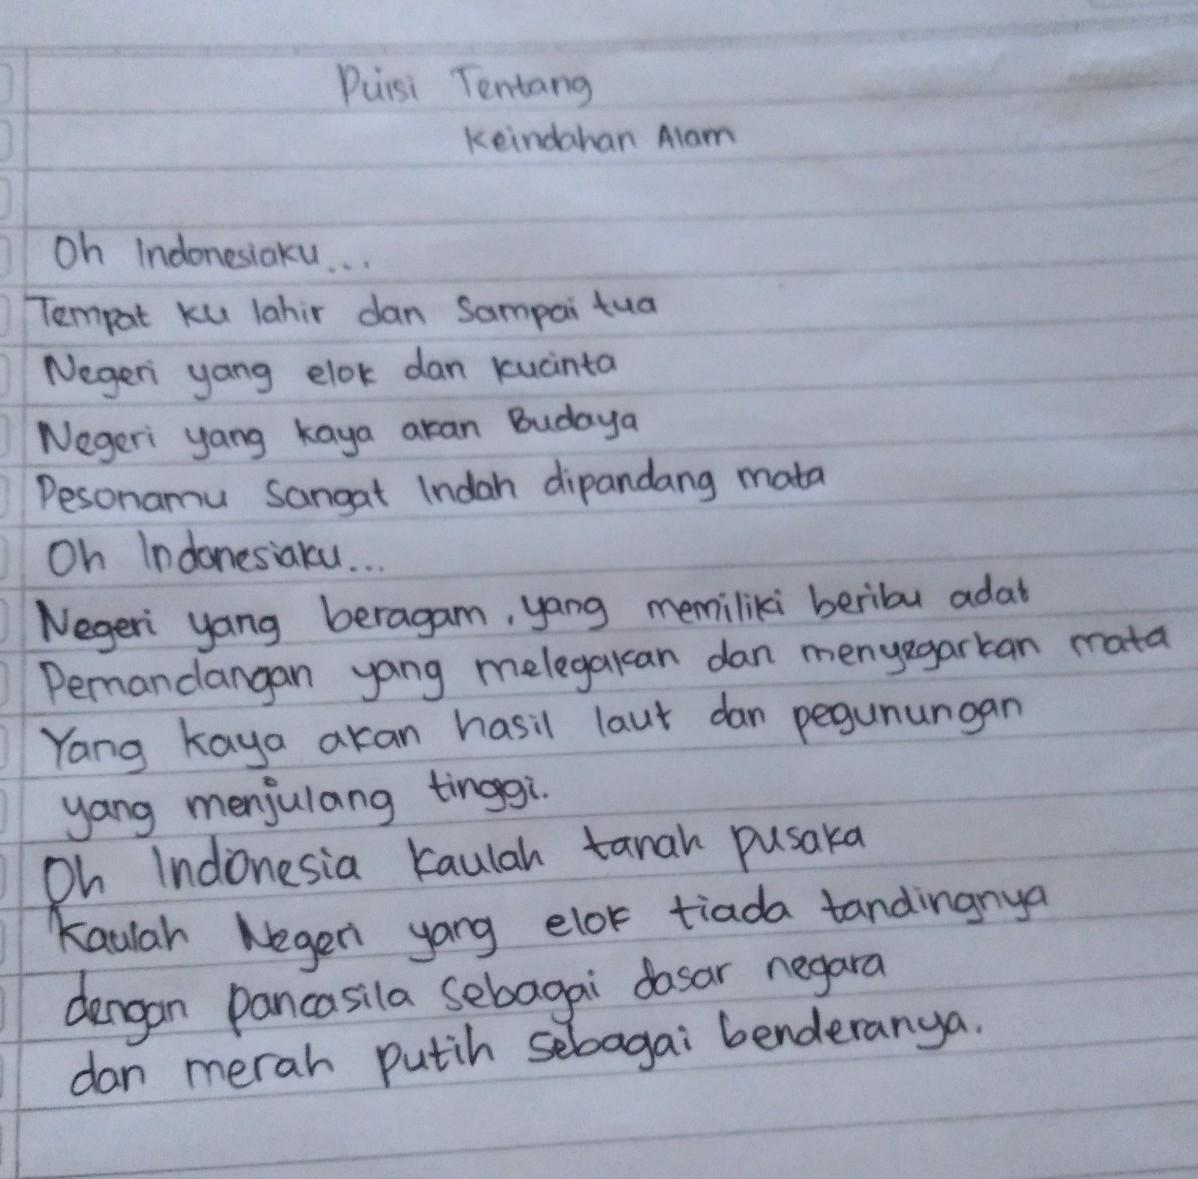 Puisi Tentang
Keindahan Alam
Oh Indonesiaku...
Tempat ku lahir dan Sampai tua
Negeri yang elok dan kucinta
Negeri yang kaya akan Budaya
Pesonamu Sangat Indah dipandang mata
Oh Indonesiaku...
Negeri yang beragam, yang memiliki beribu adat
Pemandangan yang melegakan dan menyegarkan mata
Yang kaya akan hasil laut dan pegunungan
yang menjulang tinggi.
Oh Indonesia kaulah tanah pusaka
Kaulah Negeri yang elok tiada tandingnya
dengan pancasila sebagai dasar negara
dan merah putih sebagai benderanya.